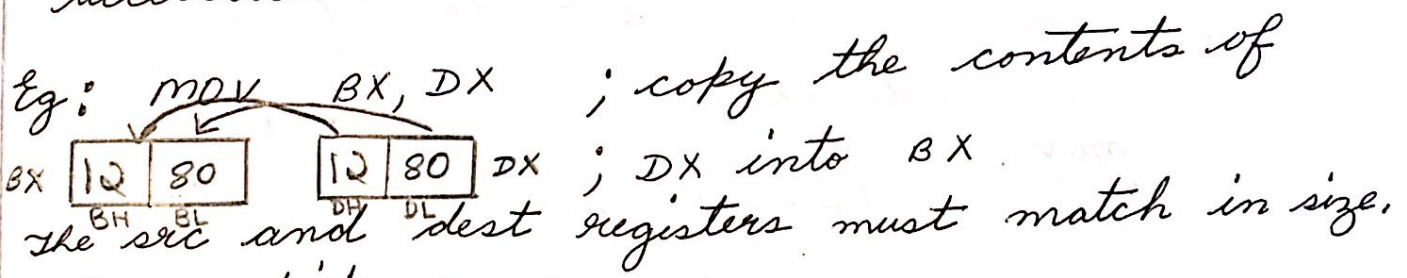 Eg: mov BX, DX ; copy the contents of
BX 12 80 12 80 DX ; DX into BX.
BH BL DH DL
The src and dest registers must match in size.